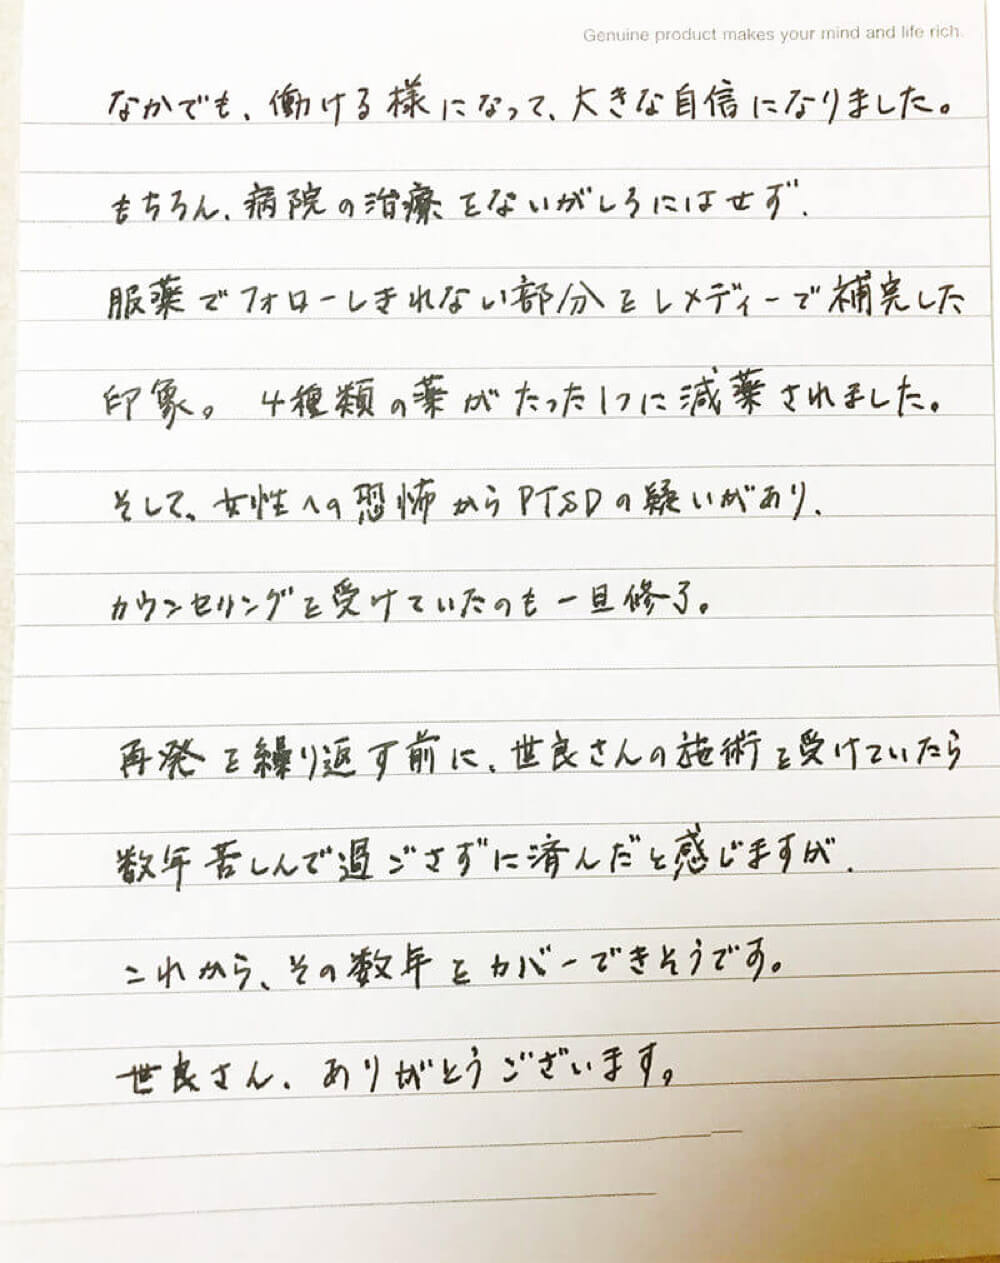 Genuine product makes your mind and life rich.
なかでも、働ける様になって、大きな自信になりました。
もちろん、病院の治療をないがしろにはせず、
服薬でフォローしきれない部分をレメディーで補完した
印象。4種類の薬がたった1つに減薬されました。
そして、女性への恐怖からPTSDの疑いがあり、
カウンセリングを受けていたのも一旦修了。
再発を繰り返す前に、世良さんの施術を受けていたら
数年苦しんで過ごさずに済んだと感じますが、
これから、その数年をカバーできそうです。
世良さん、ありがとうございます。